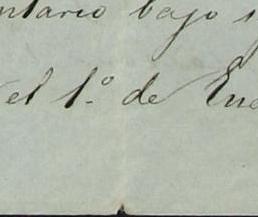 ntario bajo s
el 1.º de Ene